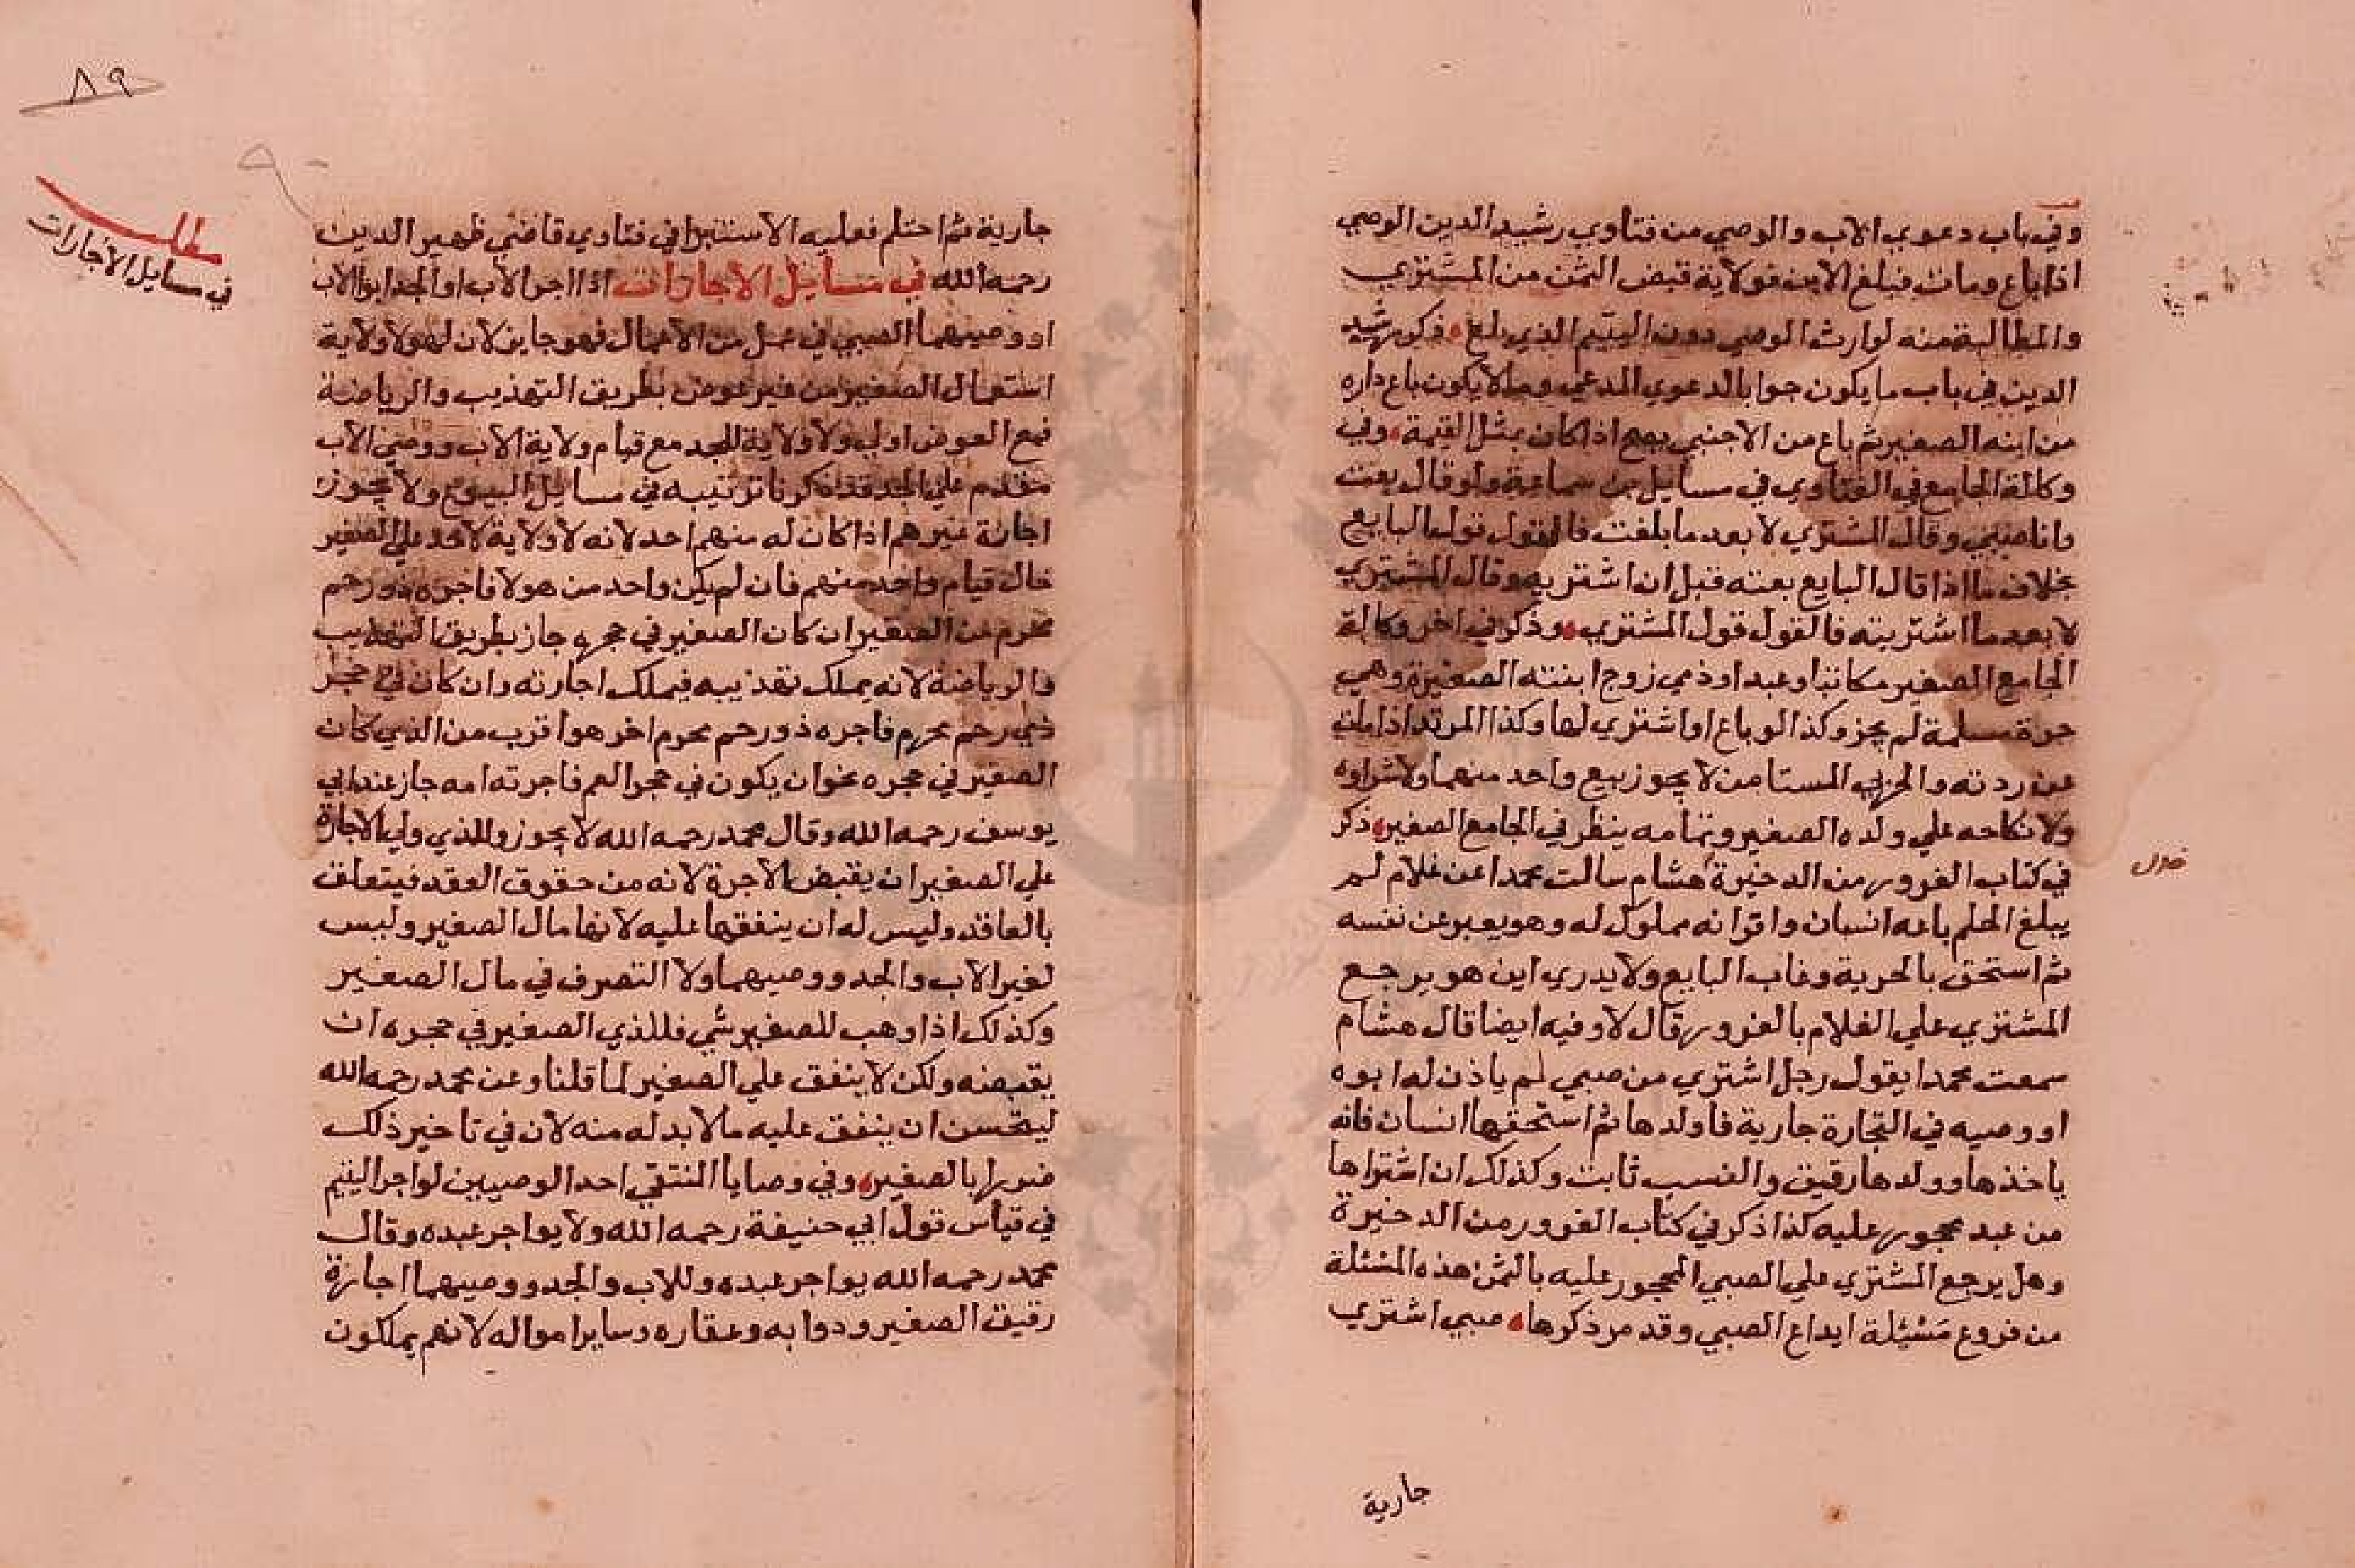 وفي باب دعوي الاب والوصي من فتاوي رشيد الدين الوصي
اذا باع ومات فبلغ الابن فولاية قبض الثمن من المشتري
والمطالبة منه لوارث الوصي دون اليتيم الذي بلغ ذكر رشيد
الدين في باب ما يكون جوابا لدعوي المدعي وما لا يكون باع داره
من ابنه الصغير ثم باع من الاجنبي يصح اذا كان بمثل القيمة وفي
وكالة الجامع في الفتاوي في مسايل بن سماعة ولو قال بعت
وانا صبي وقال المشتري لا بعد ما بلغت فالقول قول البايع
بخلاف ما اذا قال البايع بعته قبل ان اشتريه وقال المشتري
لا بعد ما اشتريته فالقول قول المشتري وذكر في اخر وكالة
الجامع الصغير مكاتب او عبد او ذمي زوج ابنته الصغيرة وهي
حرة مسلمة لم يجز وكذا لو باع او اشتري لها وكذا المرتد اذا مات
عن ردته والحربي المستامن لا يجوز بيع واحد منهما ولا شراوه
ولا نكاحه علي ولده الصغير وتمامه ينظر في الجامع الصغير ذكر
في كتاب الغرور من الدخيرة هشام سالت محمدا عن غلام لم
يبلغ الحلم باعه انسان واقر انه مملوك له وهو يعبر عن نفسه
ثم استحق بالحرية وغاب البايع ولا يدري اين هو يرجع
المشتري علي الغلام بالغرور قال لا وفيه ايضا قال هشام
سمعت محمدا يقول رجل اشتري من صبي لم ياذن له ابوه
او وصيه في التجارة جارية فاولدها ثم استحقها انسان فانه
ياخذها وولدها رقيق والنسب ثابت وكذلك ان اشتراها
من عبد محجور عليه كذا ذكر في كتاب الغرور من الدخيرة
وهل يرجع المشتري علي الصبي المحجور عليه بالثمن هذه المسئلة
من فروع مسئلة ايداع الصبي وقد مر ذكرها صبي اشتري
جارية
٨٩
مطلب
في مسايل الاجارات
جارية ثم احتلم فعليه الاستبرا في فتاوي قاضي ظهير الدين
رحمه الله في مسايل الاجارات اذا اجر الاب او الجد ابو الاب
او وصيهما الصبي في عمل من الاعمال فهو جايز لان لهولا ولاية
استعمال الصغير من غير عوض بطريق التهذيب والرياضة
فمع العوض اولي ولا ولاية للجد مع قيام ولاية الاب ووصي الاب
مقدم علي الجد قد ذكرنا ترتيبه في مسايل البيوع ولا يجوز
اجارة غيرهم اذا كان له منهم احد لانه لا ولاية لاحد علي الصغير
حال قيام واحد منهم فان لم يكن واحد من هولا فاجره ذو رحم
محرم من الصغير ان كان الصغير في حجره جاز بطريق التهذيب
والرياضة لانه يملك تهذيبه فيملك اجارته وان كان في حجر
ذي رحم محرم فاجره ذو رحم محرم اخر هو اقرب من الذي كان
الصغير في حجره نحو ان يكون في حجر العم فاجرته امه جاز عند ابي
يوسف رحمه الله وقال محمد رحمه الله لا يجوز وللذي ولي الاجارة
علي الصغير ان يقبض الاجرة لانه من حقوق العقد فيتعلق
بالعاقد وليس له ان ينفقها عليه لانها مال الصغير وليس
لغير الاب والجد ووصيهما ولا التصرف في مال الصغير
وكذلك اذا وهب للصغير شي فللذي الصغير في حجره ان
يقبضه ولكن لا ينفق علي الصغير لما قلنا وعن محمد رحمه الله
ليتحسن ان ينفق عليه ما لا بد له منه لان في تاخير ذلك
ضررا بالصغير وفي وصايا المنتقي احد الوصيين لو اجر اليتيم
في قياس قول ابي حنيفة رحمه الله ولا يواجر عبده وقال
محمد رحمه الله يواجر عبده وللاب والجد ووصيهما اجارة
رقيق الصغير ودوابه وعقاره وساير امواله لانهم يملكون